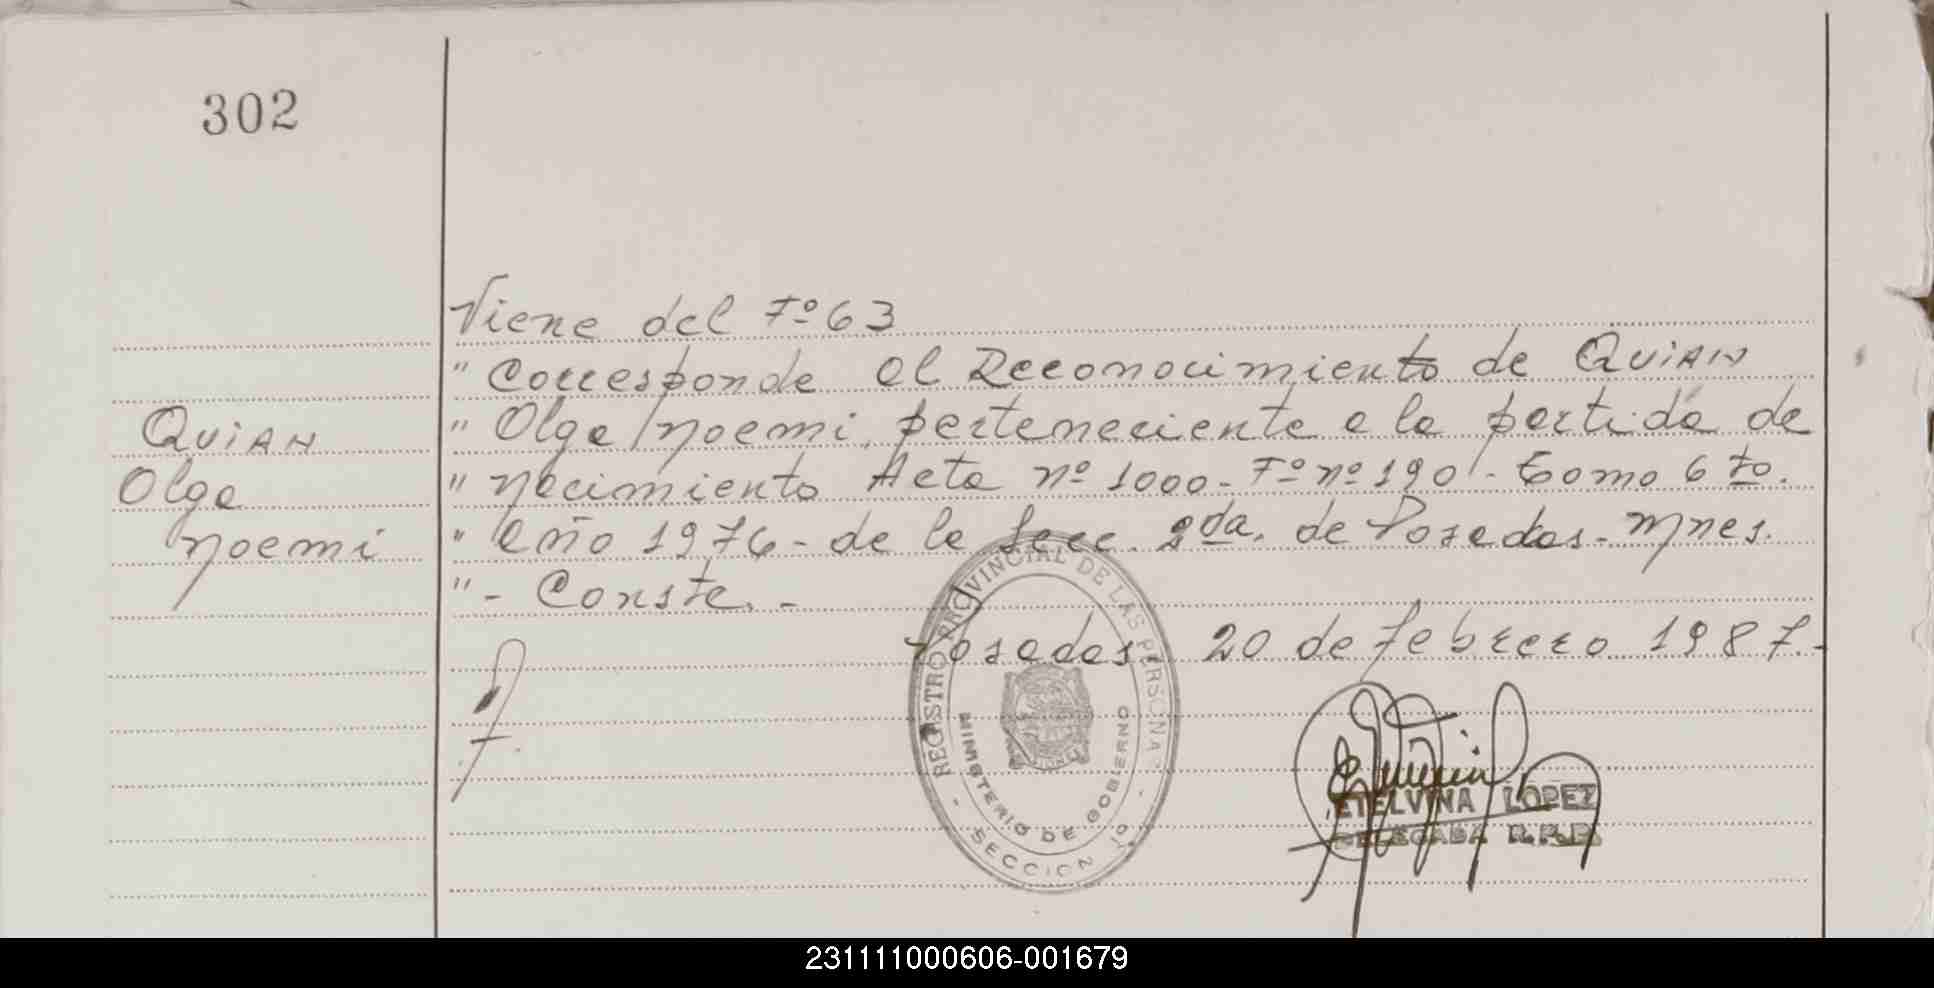 302
Viene del Fº 63
" Corresponde al Reconocimiento de QUIAN
" Olga Noemi, perteneciente a la partida de
" Nacimiento Acta Nº 1000 - Fº Nº 190 - Tomo 6 to.
" año 1976 - de la Secc. 2da. de Posadas - Mnes.
" - Conste. -
Posadas 20 de febrero 1987.-
QUIAN
Olga
Noemi
REGISTRO PROVINCIAL DE LAS PERSONAS
MINISTERIO DE GOBIERNO
- SECCION 1º -
ETELVINA LOPEZ
DELEGADA R.P.P.
231111000606-001679